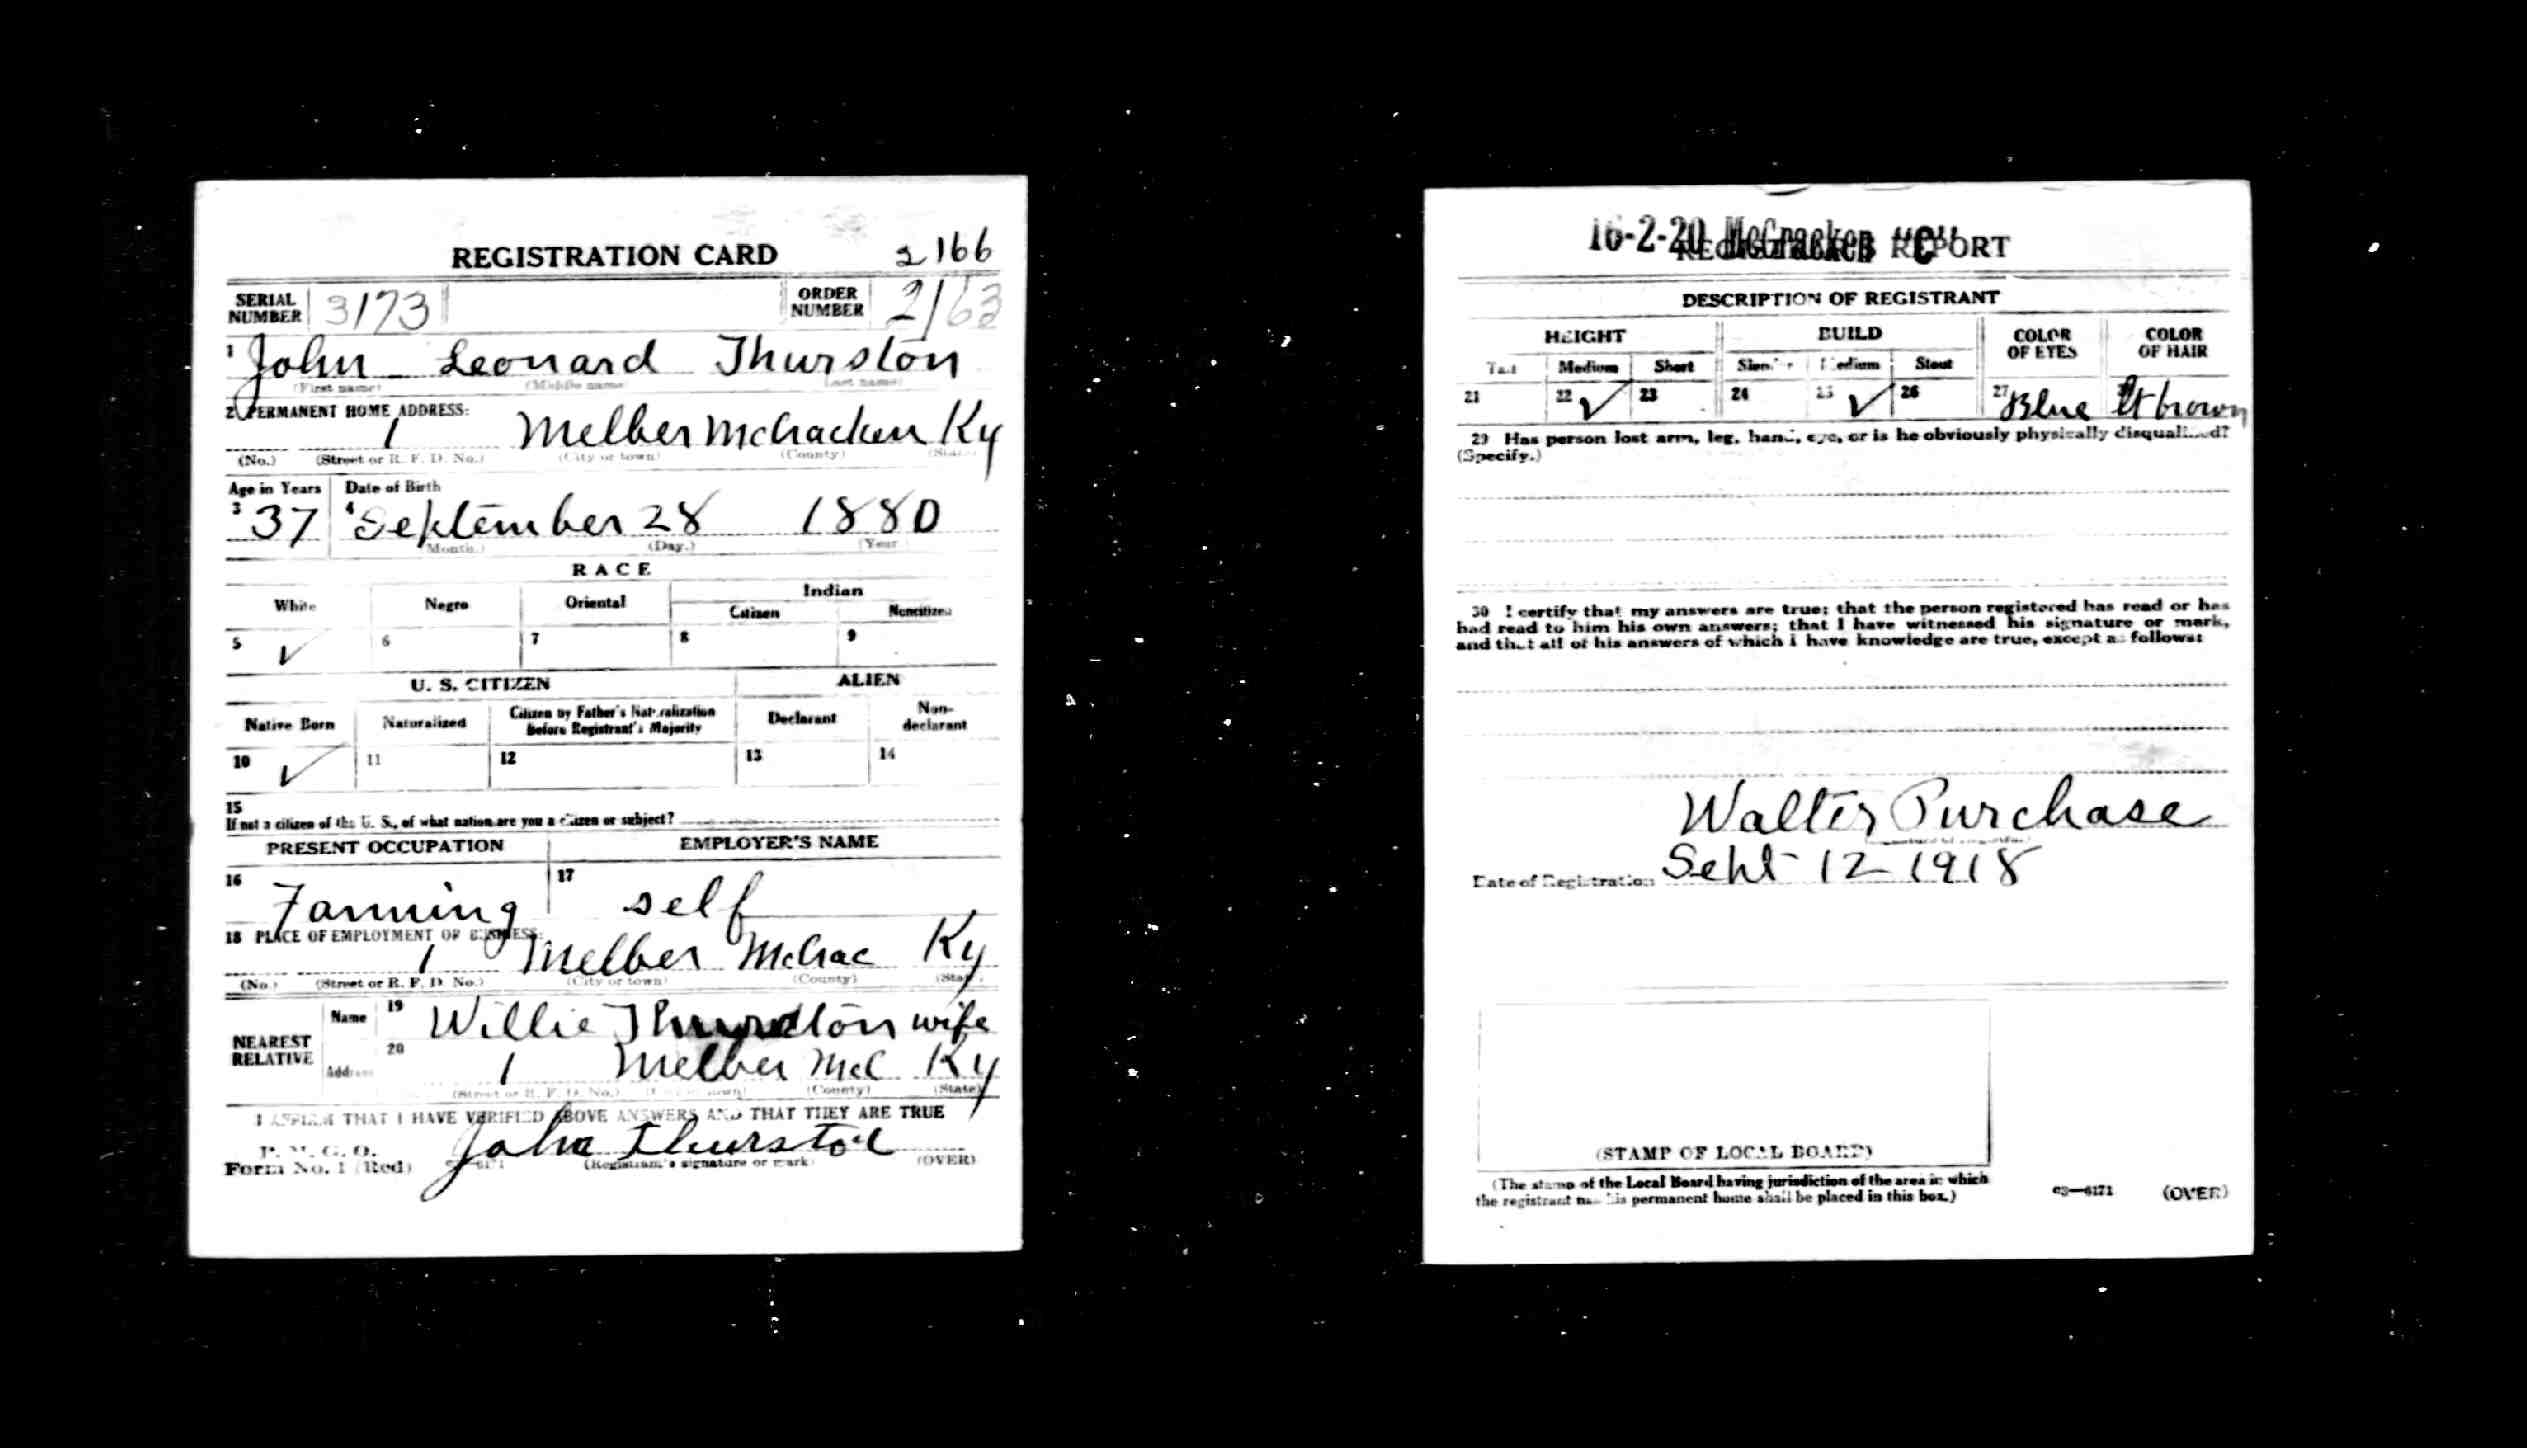 REGISTRATION CARD 2166
SERIAL NUMBER 3173 ORDER NUMBER 2163
1 John Leonard Thurston
(First name) (Middle name) (Last name)
2 PERMANENT HOME ADDRESS:
1 Melber McCracken Ky
(No.) (Street or R. F. D. No.) (City or town) (County) (State)
Age in Years Date of Birth
3 37 4 September 28 1880
(Month.) (Day.) (Year
RACE
White Negro Oriental Indian
Citizen Noncitizen
5 ✓ 6 7 8 9
U. S. CITIZEN ALIEN
Native Born Naturalized Citizen by Father's Naturalization before Registrant's Majority Declarant Non-declarant
10 ✓ 11 12 13 14
15
If not a citizen of the U. S., of what nation are you a citizen or subject?
PRESENT OCCUPATION EMPLOYER'S NAME
16 Farming 17 self
18 PLACE OF EMPLOYMENT OR BUSINESS:
1 Melber McCrac Ky
(No.) (Street or R. F. D. No.) (City or town) (County) (State)
NEAREST RELATIVE Name 19 Willie Thurston wife
Address 20 1 Melber McC Ky
(Street or R. F. D. No.) (City or town) (County) (State)
I AFFIRM THAT I HAVE VERIFIED ABOVE ANSWERS AND THAT THEY ARE TRUE
P. M. G. O.
Form No. 1 (Red) John Thurston
(Registrant's signature or mark) (OVER)
16-2-20 McCracken "C"
REGISTRAR'S REPORT
DESCRIPTION OF REGISTRANT
HEIGHT BUILD COLOR OF EYES COLOR OF HAIR
Tall Medium Short Slender Medium Stout
21 22 ✓ 23 24 25 ✓ 26 27 Blue lt brown
29 Has person lost arm, leg, hand, eye, or is he obviously physically disqualified?
(Specify.)
30 I certify that my answers are true; that the person registered has read or has
had read to him his own answers; that I have witnessed his signature or mark,
and that all of his answers of which I have knowledge are true, except as follows:
Walter Purchase
Date of Registration Sept 12 1918
(STAMP OF LOCAL BOARD)
(The stamp of the Local Board having jurisdiction of the area in which
the registrant has his permanent home shall be placed in this box.)
03—6171 (OVER)